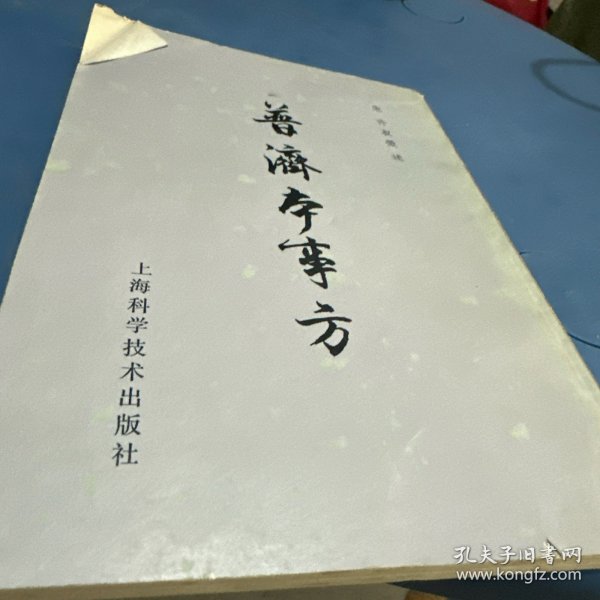 宋 许叔微 述
普濟本事方
上海科学技术出版社
孔夫子旧书网
www.kongfz.com